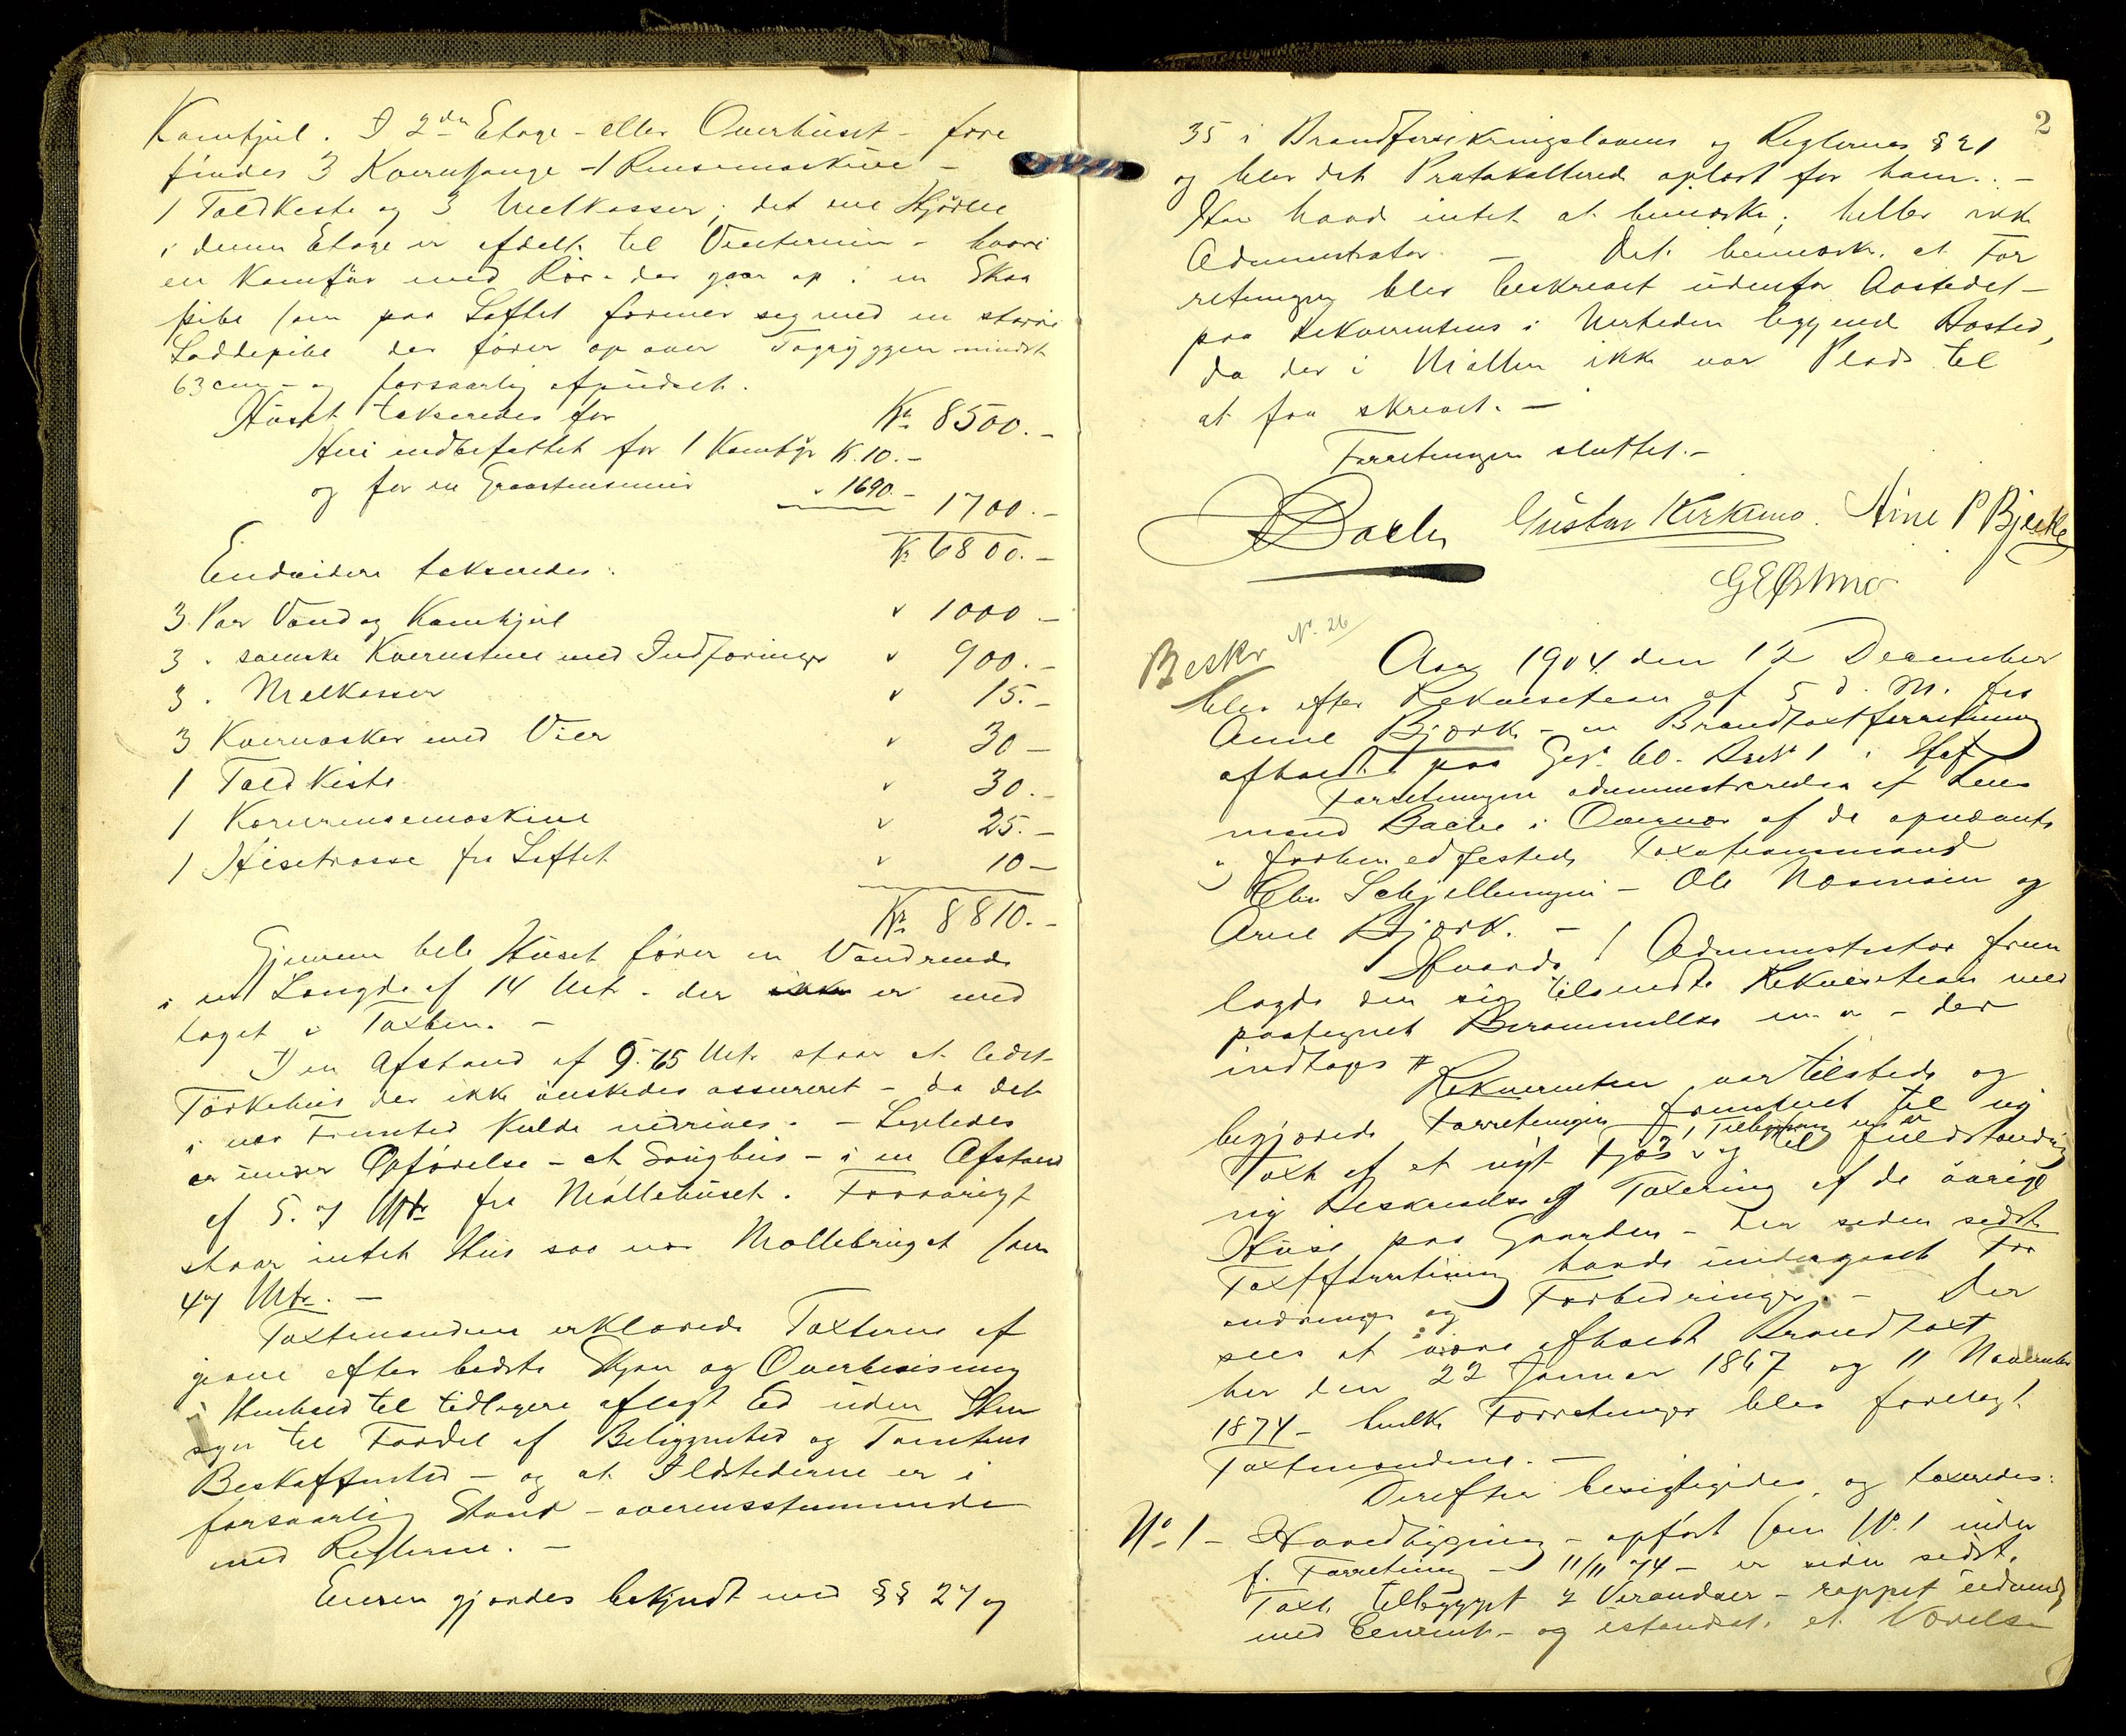 Kamhjul. I 2den Etage - eller Overhuset - fore
findes 3 Kvernhange - 1 Rensemaskine -
1 Toldkiste og 3 Melkasser; det ene Hjørne
i denne Etage er afdelt til Venterum - hvori
en Kamfür med Rør - der gaar op i en Skaa
pibe som paa Loftet forener seg med en større
Loddepibe der fører op over Tagryggen mindst
63 cm - og forsvarlig afpudset.
Huset takseredes for Kr. 8500.-
Heri indbefattet for 1 Kamfyr K. 10.-
og for en Graastensmur " 1690.- 1700.-
Kr. 6800.-
Endvidere takseredes:
3 Par Vand og Kamhjul " 1000.-
3 " svenske Kvernstene med Indføringer " 900.-
3 " Melkasser " 15.-
3 Kvernasker med Vier " 30-
1 Toldkiste " 30.-
1 Kornrensemaskine " 25.-
1 Hisetrosse fra Loftet " 10-
Kr. 8810.-
Gjennem hele Huset fører en Vandrende
i en Længde af 14 Mtr - der ikke er med
taget i Taxten. -
I en Afstand af 9.75 Mtr staar et lidet
Tørkehus der ikke ønskedes assureret - da det
i nær Fremtid kulde nedrives. - Ligeledes
er under Opførelse - et Saughus - i en Afstand
af 5.7 Mtr fra Møllehuset. Forøvrigt
staar intet Hus saa nær Møllebruget som
47 Mtr. -
Taxtmændene erklærede Taxterne af
givne efter bedste Skjøn og Overbevisning
i Henhold til tidligere aflagt Ed uden Hen
syn til Fordel af Beliggenhed og Tomtens
Beskaffenhed - og at Ildstederne er i
forsvarlig Stand - overensstemmende
med Reglerne. -
Eieren gjordes bekjendt med §§ 27 og
2
35 i Brandforsikringslovens og Reglernes § 21
og blev det Protokollerede oplæst for ham. -
Han havde intet at bemærke; heller ikke
Administrator. - Det bemærk. at For
retningen blev beskrevet udenfor Aastedet -
paa Rekvirentens i Nærheden liggende Bosted,
da der i Møllen ikke var Plads til
at faa skrevet. -
Forretningen sluttet.-
Bache Gustav Kirkemo. Arne P Bjerke
G E Østmo
Beskr No. 26
Aar 1904 den 12 December
blev efter Rekvisition af 5 d. M. fra
Arne Bjørk - en Brandtaxtforretning
afholdt paa Gr. 60. Brk. 1 i Hof
Forretningen administreredes af Lens
mand Bache i Overvær af de opnævnte
og forhen edfestede Taxationsmænd
Chr. Schjellungen - Ole Næsmoen og
Arne Bjørk. -
Hvorda Administrator frem
lagde den sig tilsendte Rekvisition med
paategnet Berammelse m. v. - der
indtages #
Rekvirenten var tilstede og
begjærede Forretningen fremmet til ny
Taxt af et nyt Fjøs og 1 Tilbygning til fuldstændig
ny Beskrivelse og Taxering af de øvrige
Huse paa Gaarden - der siden sidste
Taxtforretning havde undergaaet For
andringer og Forbedringer. - Der
sees at være afholdt Brandtaxt
her den 22 Januar 1867 og 11 November
1874 - hvilke Forretninger blev forelagt
Taxtmændene. -
Derefter besigtigedes og taxeredes:
No. 1 - Hovedbygning - opført som No. 1 under
f. Forretning - 11/11 74 - er siden sidst.
Taxt tilbygget 2 Verandaer - rappet udvendig
med Cement - og istandsat et Værelse